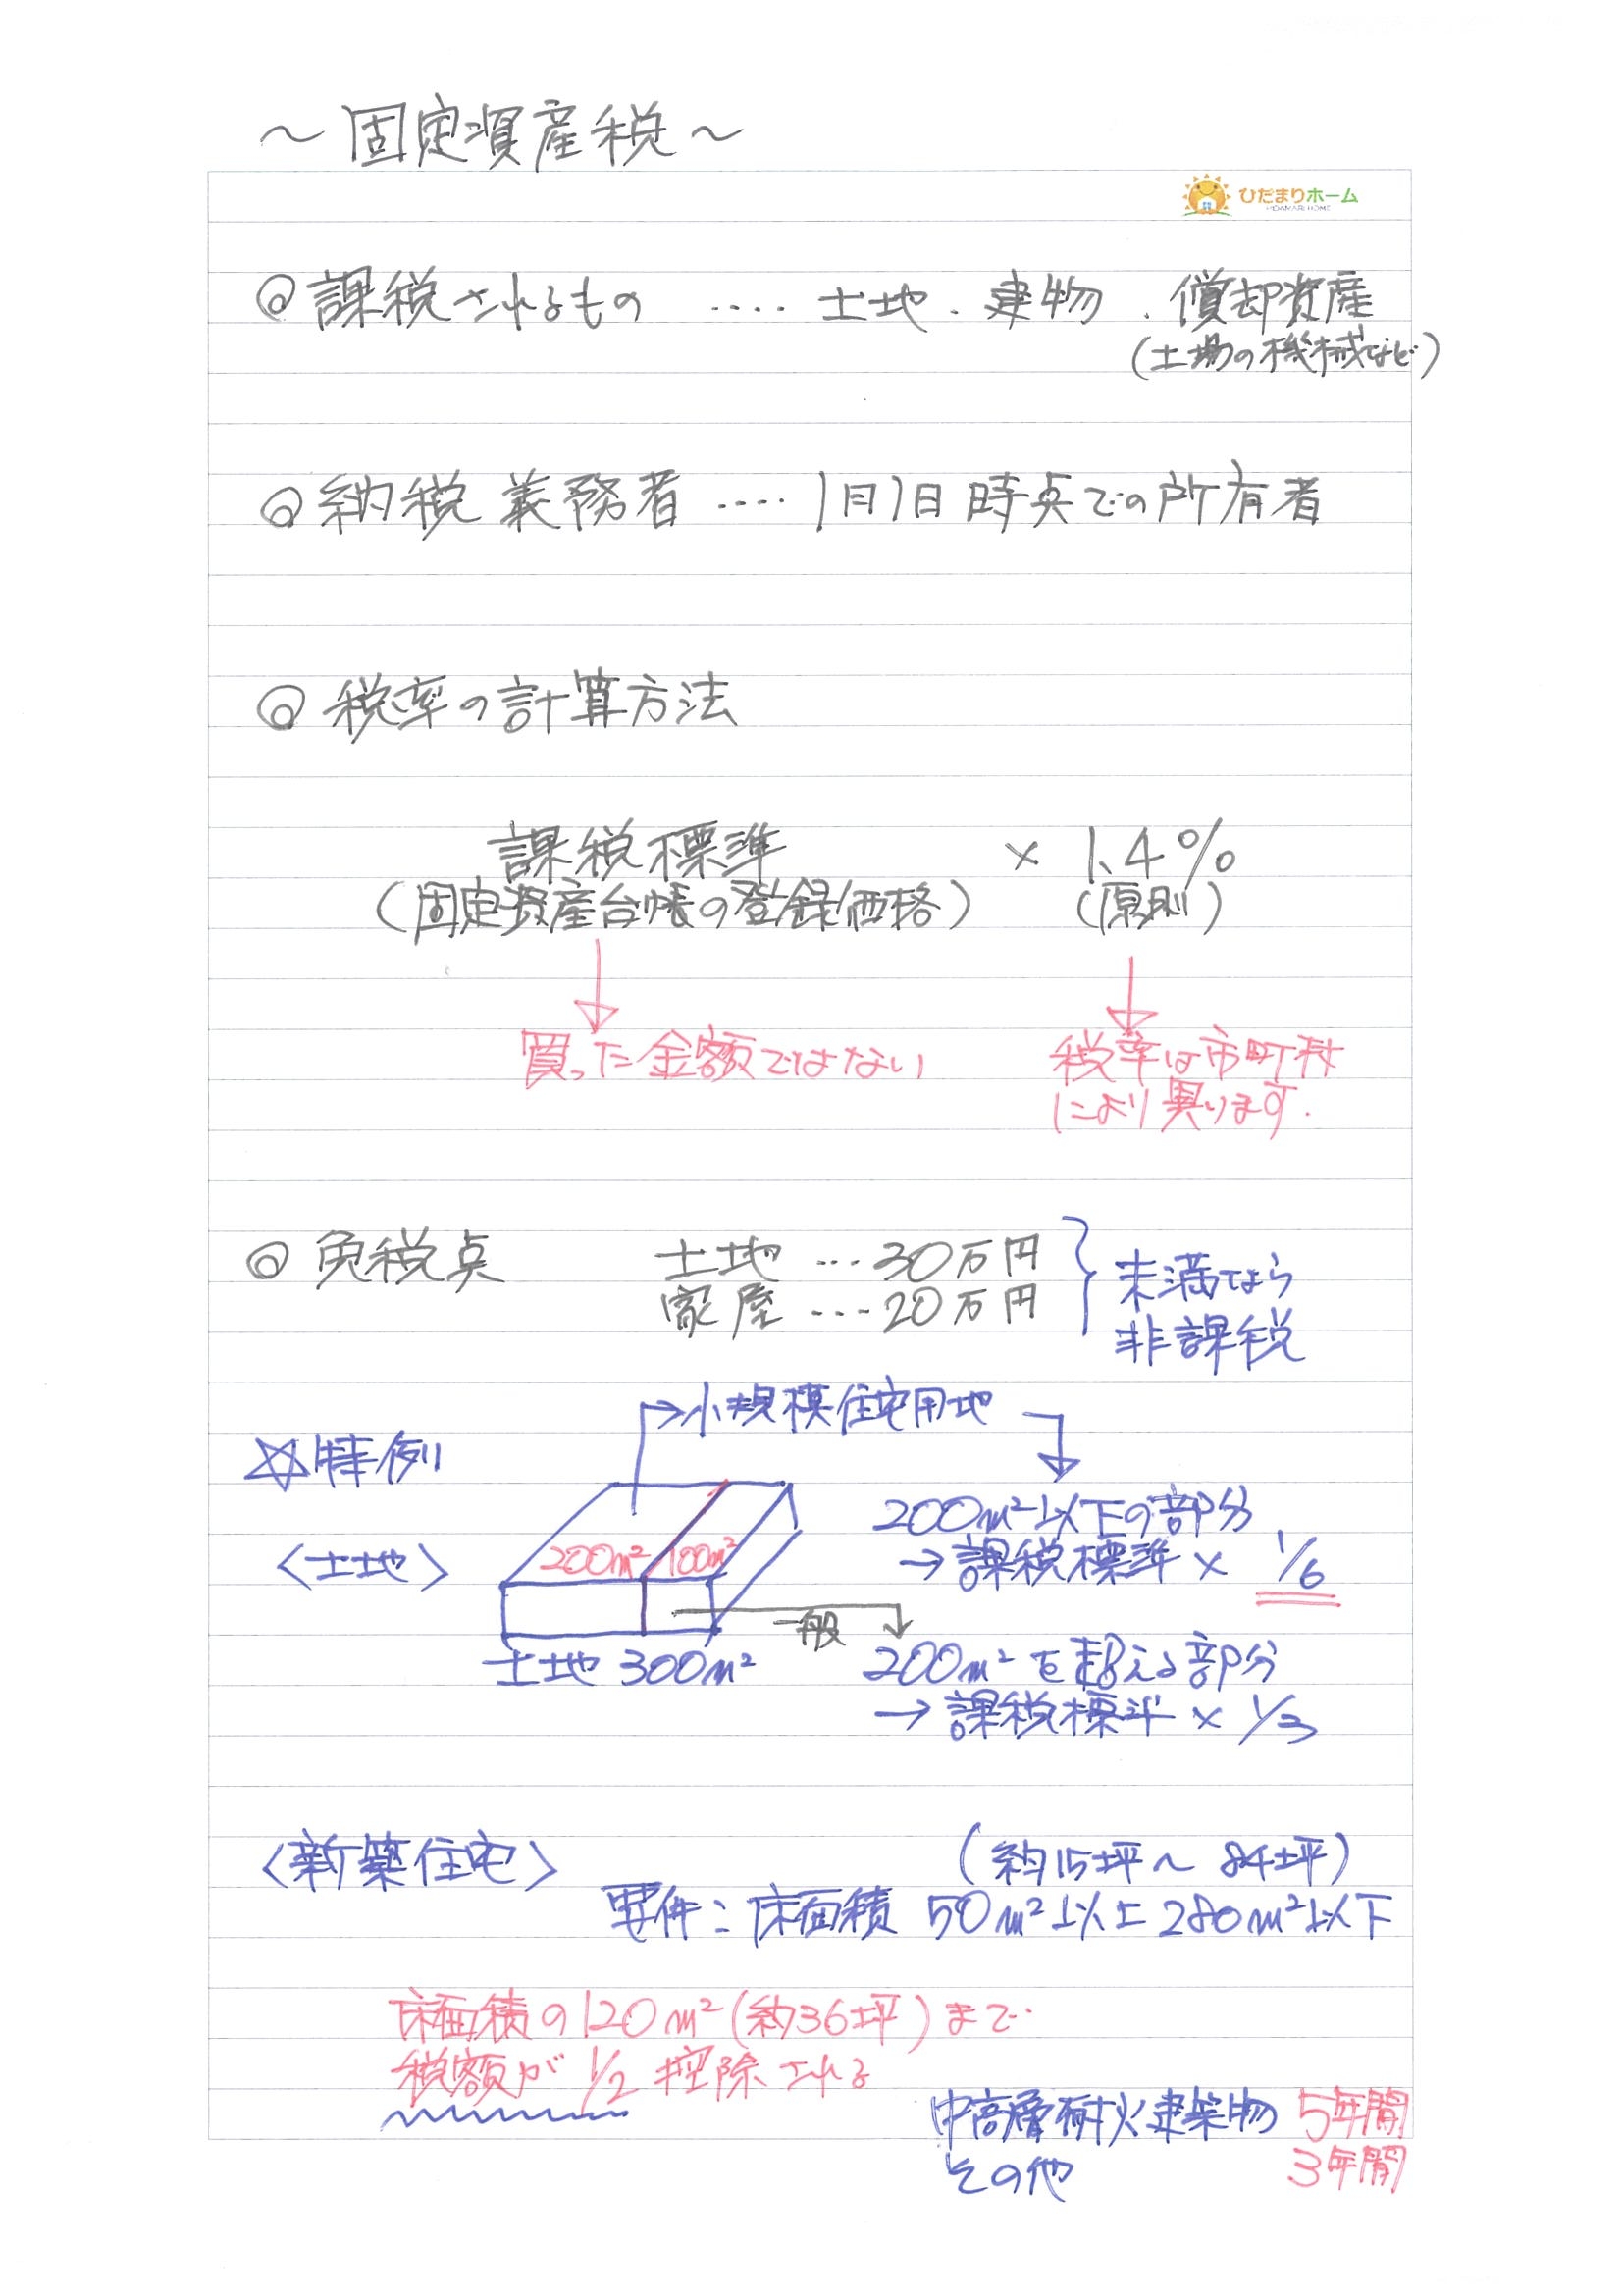 ～固定資産税～
ひだまりホーム
HIDAMARI HOME
◎課税されるもの ‥‥ 土地．建物．償却資産
(土場の機械など)
◎納税義務者 ‥‥ 1月1日時点での所有者
◎税率の計算方法
課税標準 × 1.4%
(固定資産台帳の登録価格) (原則)
買った金額ではない
税率は市町村
により異ります．
◎免税点 土地 … 30万円
家屋 … 20万円
未満なら
非課税
→小規模住宅用地
☆特例
200m²以下の部分
<土地> 200m² 100m² →課税標準 × 1/6
一般
土地 300m² 200m²を超える部分
→課税標準 × 1/3
<新築住宅> (約15坪～84坪)
要件：床面積 50m²以上280m²以下
床面積の120m²(約36坪)まで
税額が 1/2 控除される
中高層耐火建築物 5年間
その他 3年間